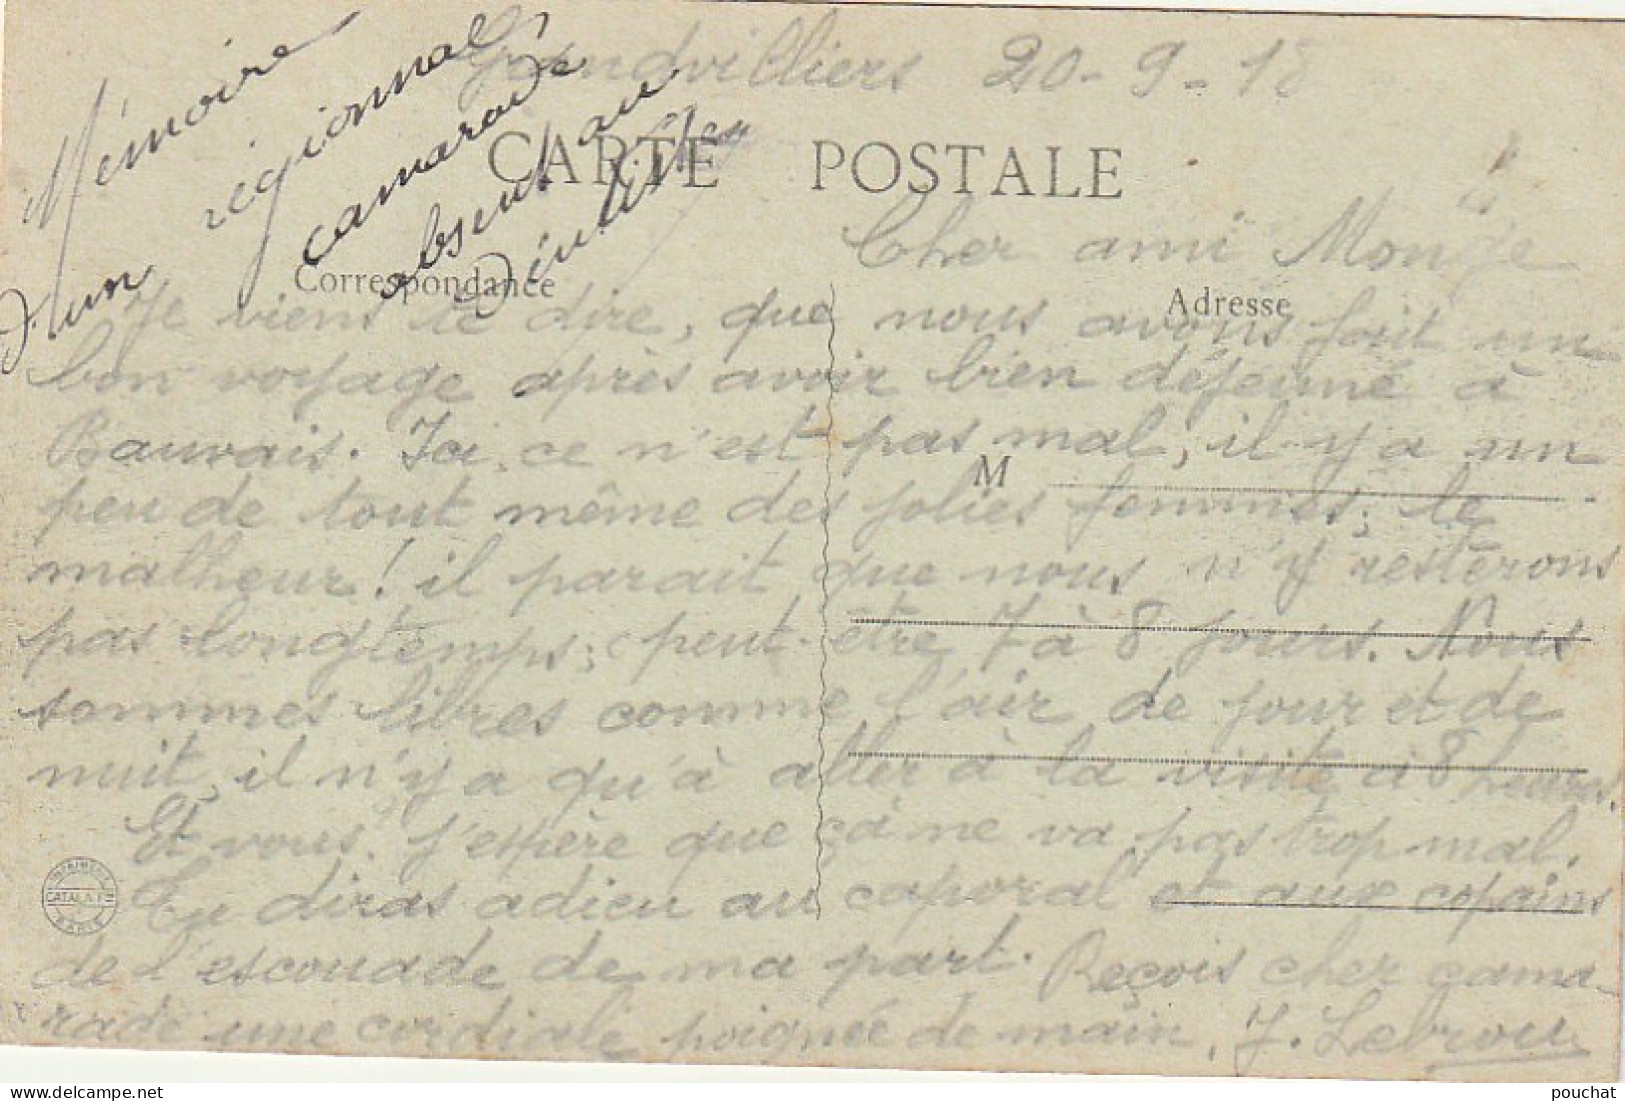 Grandvilliers 20-9-18
Mémoire
régionnal
d'un camarade
absent au
CARTE POSTALE
Cher ami Monge
Correspondance
Adresse
Je viens te dire, que nous avons fait un
bon voyage après avoir bien déjeuné à
Bauvais. Ici, ce n'est pas mal, il y a un
M
peu de tout même des jolies femmes; le
malheur! il parait que nous n'y resterons
pas longtemps; peut-être 7 à 8 jours. Nous
sommes libres comme l'air de jour et de
nuit, il n'y a qu'à aller à la visite à 8 heures.
Et vous, j'espère que ça ne va pas trop mal.
Tu diras adieu au caporal et aux copains
de l'escouade de ma part. Reçois cher cama-
rade une cordiale poignée de main. J. Lebrou
IMPRIMERIE
CATALA Fres
PARIS
pouchat